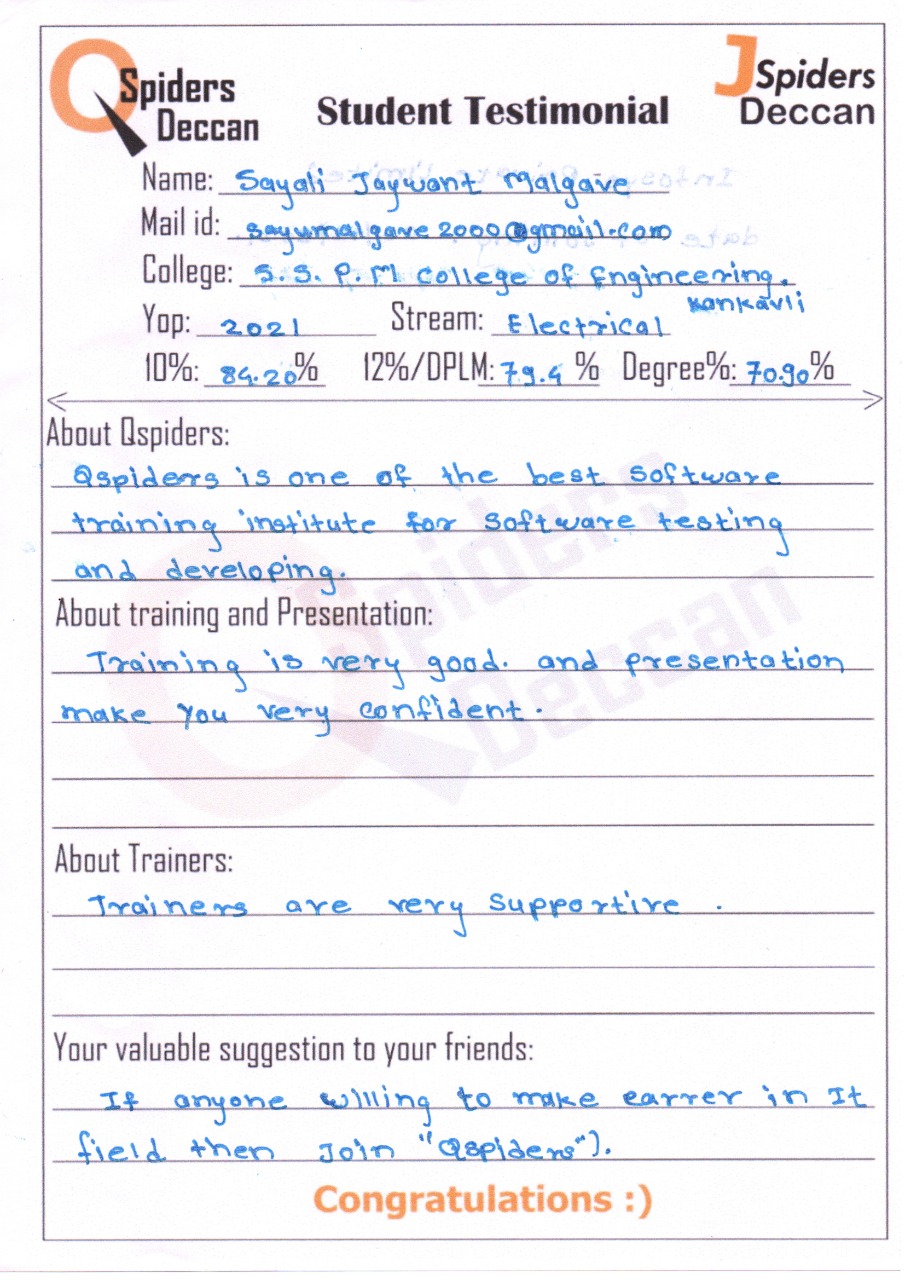 QSpiders
Deccan
JSpiders
Deccan
Student Testimonial
Name: Sayali Jaywant Malgave
Mail id: sayumalgave2000@gmail.com
College: S.S.P.M College of Engineering.
Kankavli
Yop: 2021 Stream: Electrical
10%: 84.20% 12%/DPLM: 79.4 % Degree%: 70.90%
About Qspiders:
Qspiders is one of the best software
training institute for software testing
and developing.
About training and Presentation:
Training is very good. and presentation
make you very confident.
About Trainers:
Trainers are very supportive .
Your valuable suggestion to your friends:
If anyone willing to make carrer in It
field then Join "Qspiders").
Congratulations :)
QSpiders
Deccan